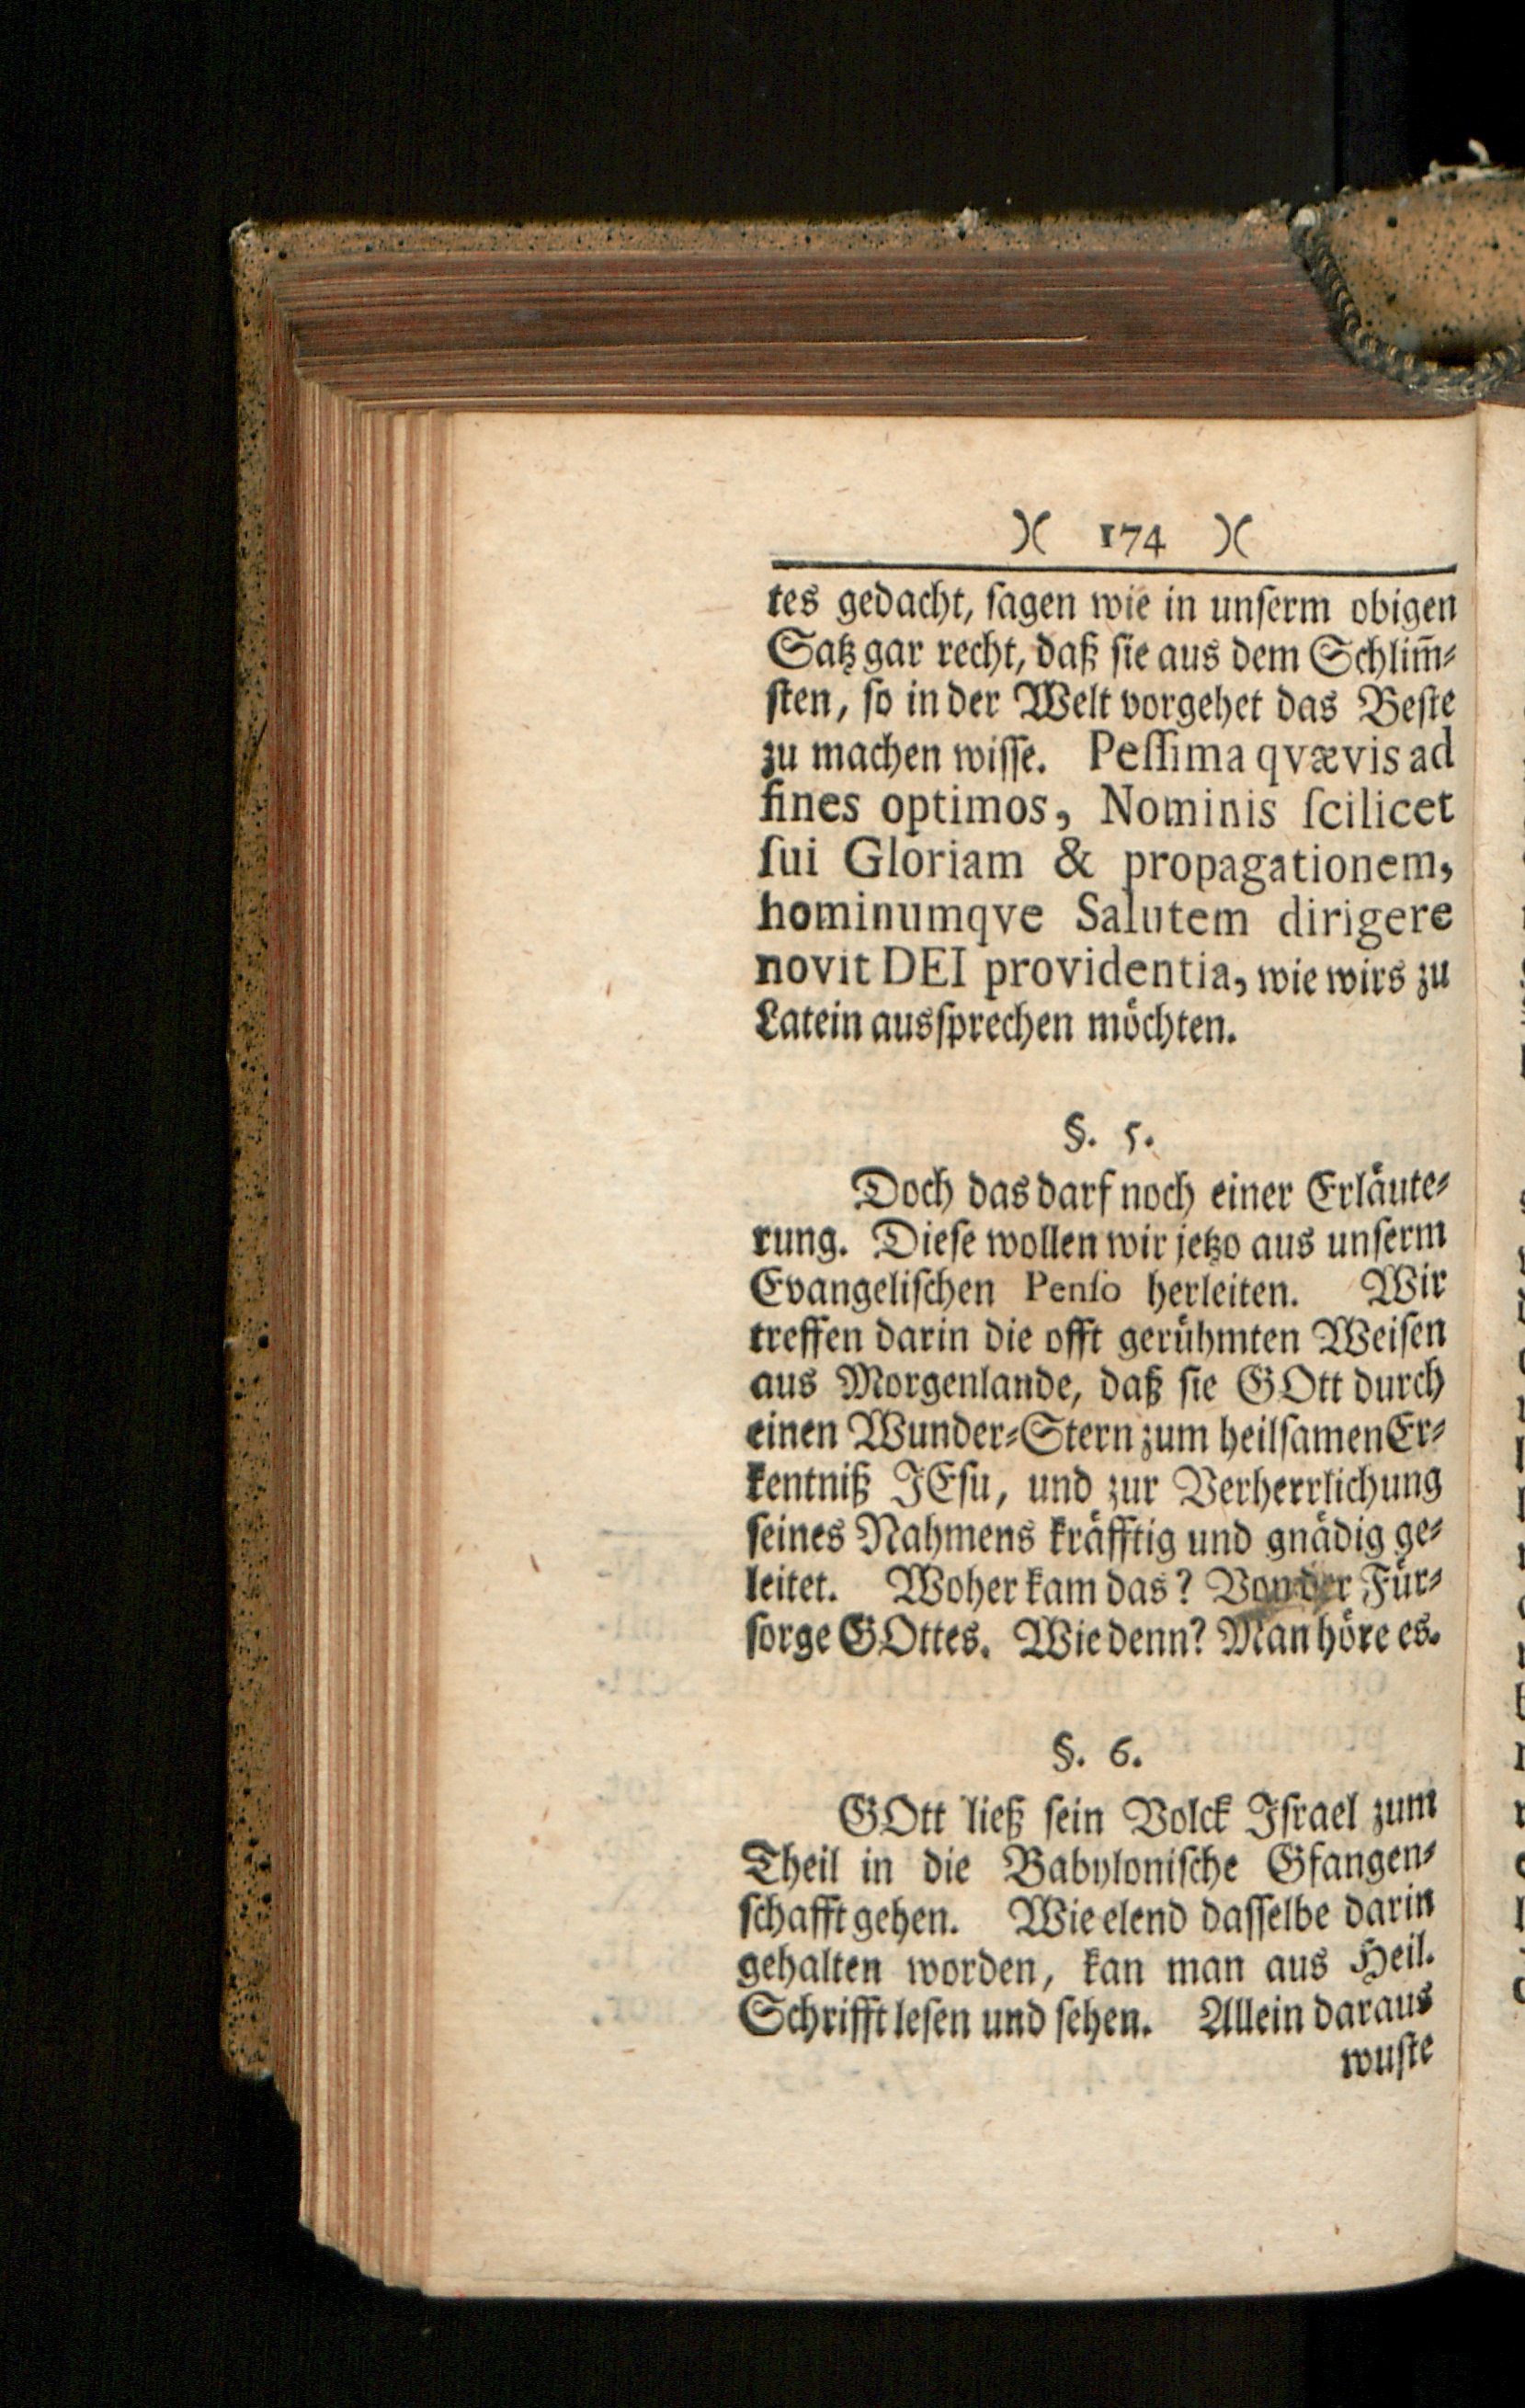 )( 174 )(
tes gedacht, ſagen wie in unſerm obigen
Satz gar recht, daß ſie aus dem Schlim̃⸗
ſten, ſo in der Welt vorgehet das Beſte
zu machen wiſſe. Peſſima qvævis ad
fines optimos, Nominis ſcilicet
ſui Gloriam & propagationem,
hominumqve Salutem dirigere
novit DEI providentia, wie wirs zu
Latein ausſprechen möchten.
§. 5.
Doch das darf noch einer Erläute⸗
rung. Dieſe wollen wir jetzo aus unſerm
Evangeliſchen Penſo herleiten. Wir
treffen darin die offt gerühmten Weiſen
aus Morgenlande, daß ſie GOtt durch
einen Wunder⸗Stern zum heilſamen Er⸗
kentniß JEſu, und zur Verherrlichung
ſeines Nahmens kräfftig und gnädig ge⸗
leitet. Woher kam das? Von der Für⸗
ſorge GOttes. Wie denn? Man höre es.
§. 6.
GOtt ließ ſein Volck Iſrael zum
Theil in die Babyloniſche Gfangen⸗
ſchafft gehen. Wie elend daſſelbe darin
gehalten worden, kan man aus Heil.
Schrifft leſen und ſehen. Allein daraus
wuſte